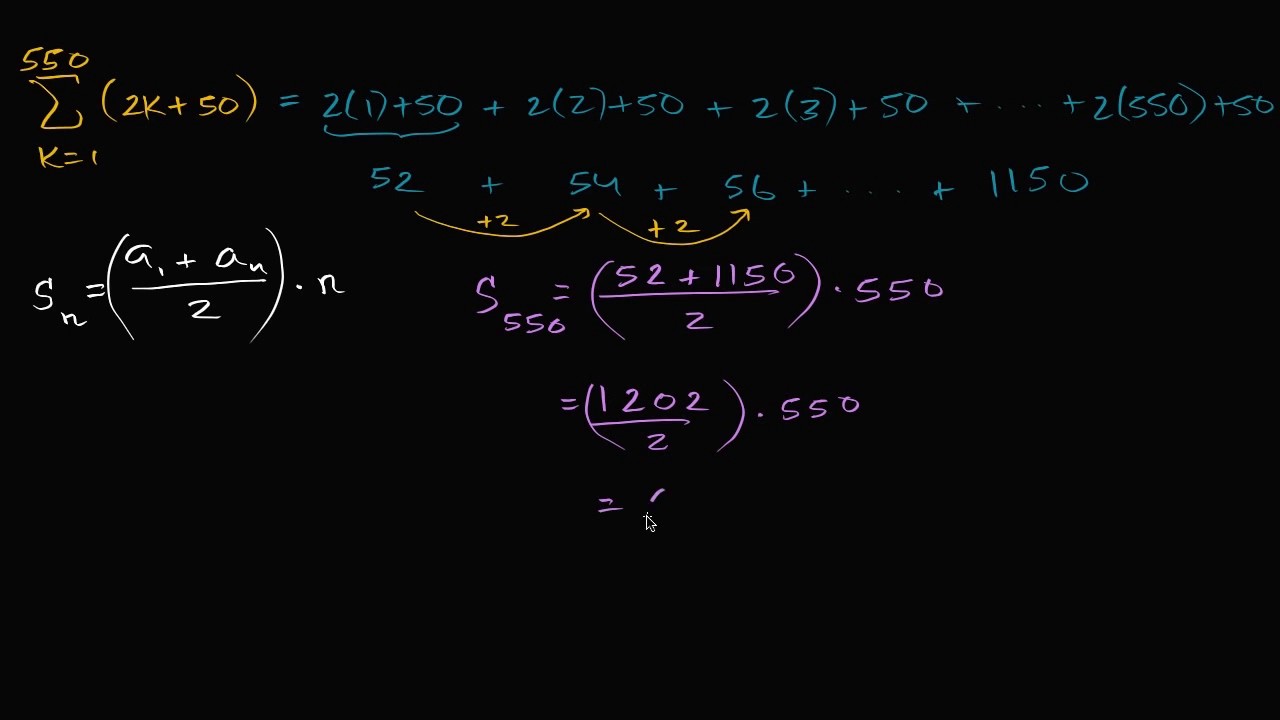 550
∑ (2K+50) = 2(1)+50 + 2(2)+50 + 2(3)+50 + ... + 2(550)+50
K=1
52 + 54 + 56 + ... + 1150
+2 +2
Sₙ = (a₁ + aₙ / 2) · n
S₅₅₀ = (52 + 1150 / 2) · 550
= (1202 / 2) · 550
=